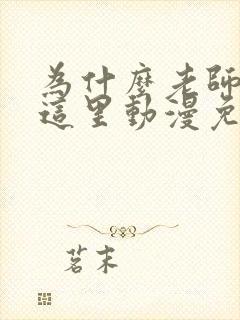 為什麼老師
這里動漫免
茗末